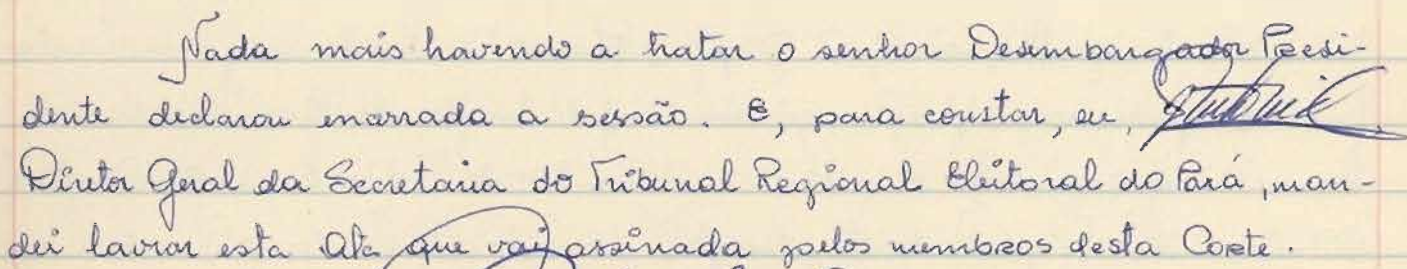 Nada mais havendo a tratar o senhor Desembargador Presi-
dente declarou encerrada a sessão. E, para constar, eu,
Diretor Geral da Secretaria do Tribunal Regional Eleitoral do Pará, man-
dei lavrar esta Ata que vai assinada pelos membros desta Corte.